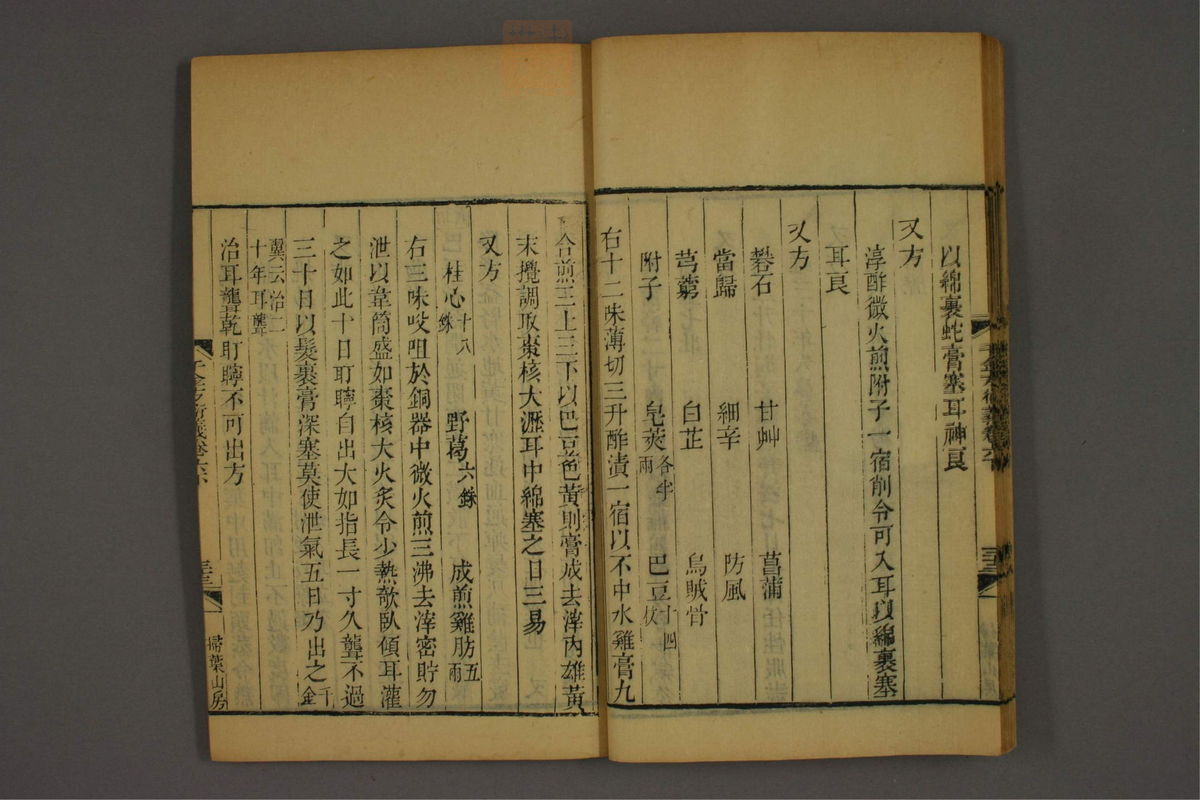 以綿裹蛇膏塞耳神良
又方
淳酢微火煎附子一宿削令可入耳以綿裹塞
耳良
又方
礬石 甘艸 菖蒲
當歸 細辛 防風
芎藭 白芷 烏賊骨
附子 皂莢各半兩 巴豆十四枚
右十二味薄切三升酢漬一宿以不中水雞膏九
合煎三上三下以巴豆色黃則膏成去滓內雄黃
末攪調取棗核大瀝耳中綿塞之日三易
又方
桂心十八銖 野葛六銖 成煎雞肪五兩
右三味㕮咀於銅器中微火煎三沸去滓密貯勿
泄以葦筒盛如棗核大火炙令少熱欹臥傾耳灌
之如此十日耵聹自出大如指長一寸久聾不過
三十日以髮裹膏深塞莫使泄氣五日乃出之千金
翼云治二十年耳聾
治耳聾乾耵聹不可出方
千金方衍義卷六
三三
掃葉山房